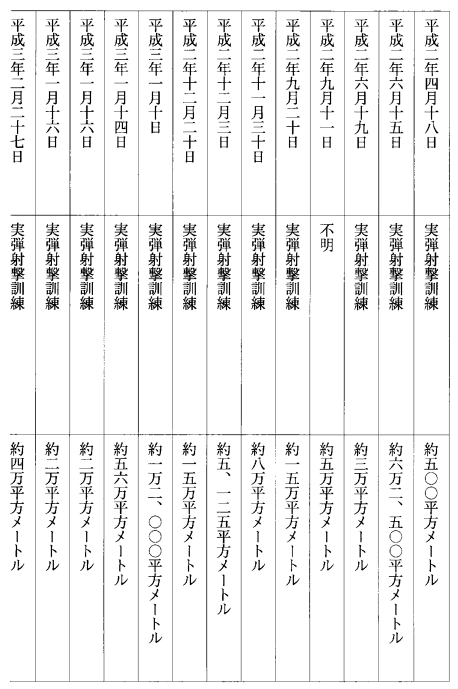 平成二年四月十八日 実弾射撃訓練 約五〇〇平方メートル
平成二年六月十五日 実弾射撃訓練 約六万二、五〇〇平方メートル
平成二年六月十九日 実弾射撃訓練 約三万平方メートル
平成二年九月十一日 不明 約五万平方メートル
平成二年九月二十日 実弾射撃訓練 約一五万平方メートル
平成二年十一月三十日 実弾射撃訓練 約八万平方メートル
平成二年十二月三日 実弾射撃訓練 約五、一二五平方メートル
平成二年十二月二十日 実弾射撃訓練 約一五万平方メートル
平成三年一月十日 実弾射撃訓練 約一万二、〇〇〇平方メートル
平成三年一月十四日 実弾射撃訓練 約五六万平方メートル
平成三年一月十六日 実弾射撃訓練 約二万平方メートル
平成三年一月十六日 実弾射撃訓練 約二万平方メートル
平成三年二月二十七日 実弾射撃訓練 約四万平方メートル